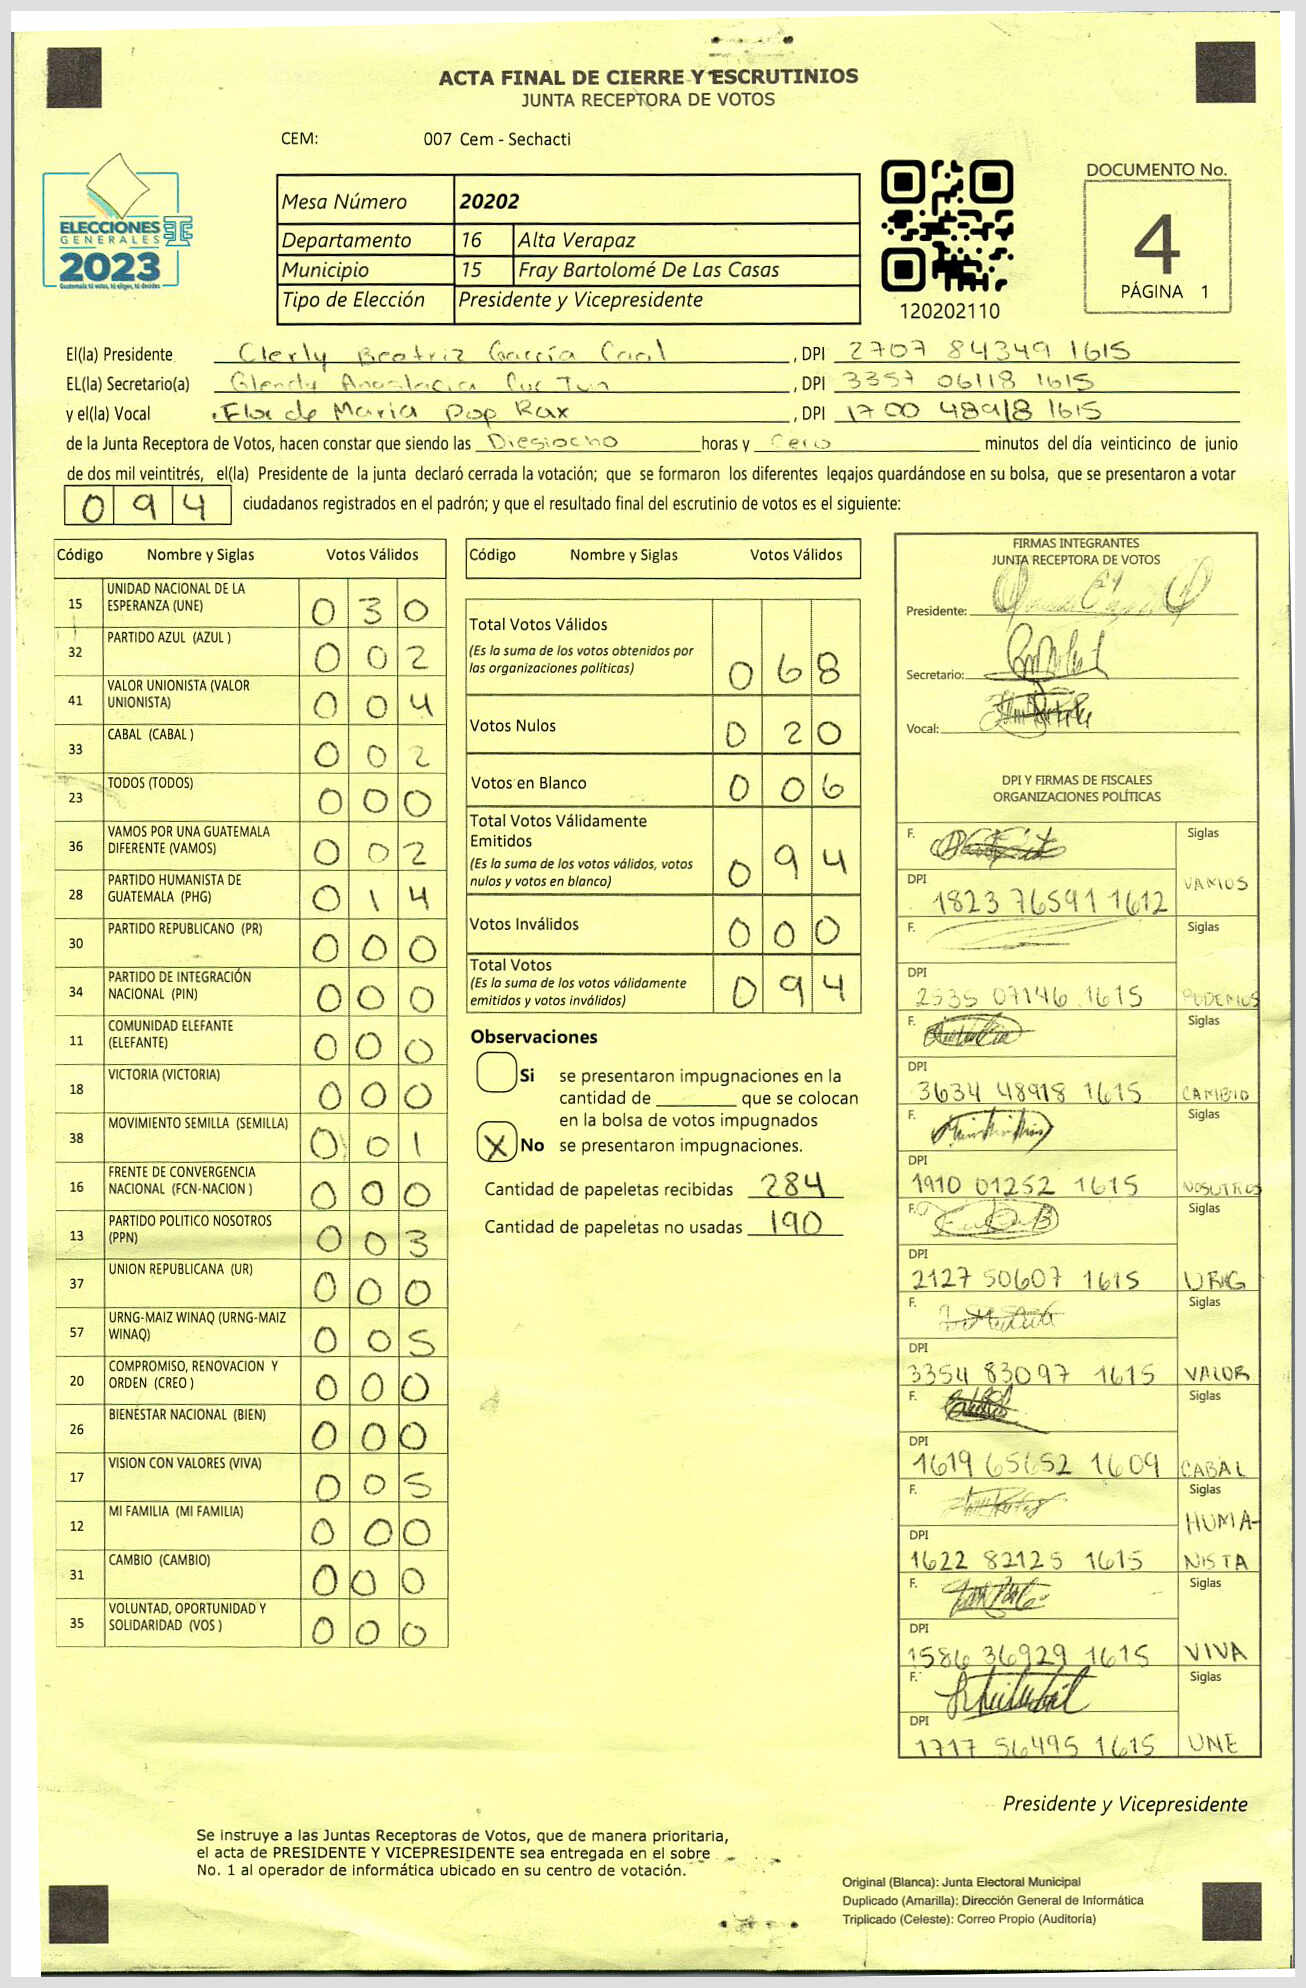 ACTA FINAL DE CIERRE Y ESCRUTINIOS
JUNTA RECEPTORA DE VOTOS
CEM: 007 Cem - Sechacti
ELECCIONES
GENERALES
2023
Guatemala tú votas, tú eliges, tú decides
Mesa Número 20202
Departamento 16 Alta Verapaz
Municipio 15 Fray Bartolomé De Las Casas
Tipo de Elección Presidente y Vicepresidente
120202110
DOCUMENTO No.
4
PÁGINA 1
El(la) Presidente Clerly Beatriz García Caal, DPI 2707 84349 1615
EL(la) Secretario(a) Glendy Anastacia Cuc Tun, DPI 3357 06118 1615
y el(la) Vocal Flor de Maria Pop Rax, DPI 1700 48918 1615
de la Junta Receptora de Votos, hacen constar que siendo las Diesiocho horas y Cero minutos del día veinticinco de junio
de dos mil veintitrés, el(la) Presidente de la junta declaró cerrada la votación; que se formaron los diferentes legajos guardándose en su bolsa, que se presentaron a votar
094 ciudadanos registrados en el padrón; y que el resultado final del escrutinio de votos es el siguiente:
Código Nombre y Siglas Votos Válidos
15 UNIDAD NACIONAL DE LA
ESPERANZA (UNE) 030
32 PARTIDO AZUL (AZUL ) 002
41 VALOR UNIONISTA (VALOR
UNIONISTA) 004
33 CABAL (CABAL ) 002
23 TODOS (TODOS) 000
36 VAMOS POR UNA GUATEMALA
DIFERENTE (VAMOS) 002
28 PARTIDO HUMANISTA DE
GUATEMALA (PHG) 014
30 PARTIDO REPUBLICANO (PR) 000
34 PARTIDO DE INTEGRACIÓN
NACIONAL (PIN) 000
11 COMUNIDAD ELEFANTE
(ELEFANTE) 000
18 VICTORIA (VICTORIA) 000
38 MOVIMIENTO SEMILLA (SEMILLA) 001
16 FRENTE DE CONVERGENCIA
NACIONAL (FCN-NACION ) 000
13 PARTIDO POLITICO NOSOTROS
(PPN) 003
37 UNION REPUBLICANA (UR) 000
57 URNG-MAIZ WINAQ (URNG-MAIZ
WINAQ) 005
20 COMPROMISO, RENOVACION Y
ORDEN (CREO ) 000
26 BIENESTAR NACIONAL (BIEN) 000
17 VISION CON VALORES (VIVA) 005
12 MI FAMILIA (MI FAMILIA) 000
31 CAMBIO (CAMBIO) 000
35 VOLUNTAD, OPORTUNIDAD Y
SOLIDARIDAD (VOS ) 000
Código Nombre y Siglas Votos Válidos
Total Votos Válidos
(Es la suma de los votos obtenidos por
las organizaciones políticas) 068
Votos Nulos 020
Votos en Blanco 006
Total Votos Válidamente
Emitidos
(Es la suma de los votos válidos, votos
nulos y votos en blanco) 094
Votos Inválidos 000
Total Votos
(Es la suma de los votos válidamente
emitidos y votos inválidos) 094
Observaciones
Si se presentaron impugnaciones en la
cantidad de ________ que se colocan
en la bolsa de votos impugnados
X No se presentaron impugnaciones.
Cantidad de papeletas recibidas 284
Cantidad de papeletas no usadas 190
FIRMAS INTEGRANTES
JUNTA RECEPTORA DE VOTOS
Presidente:
Secretario:
Vocal:
DPI Y FIRMAS DE FISCALES
ORGANIZACIONES POLÍTICAS
F. Siglas
DPI VAMOS
1823 76591 1612
F. Siglas
DPI
2535 07146 1615 PODEMOS
F. Siglas
DPI
3634 48918 1615 CAMBIO
F. Siglas
DPI
1910 01252 1615 NOSOTROS
F. Siglas
DPI
2127 50607 1615 URNG
F. Siglas
DPI
3354 83097 1615 VALOR
F. Siglas
DPI
1619 65652 1609 CABAL
F. Siglas
HUMA-
DPI
1622 82125 1615 NISTA
F. Siglas
DPI
1586 36929 1615 VIVA
F. Siglas
DPI
1717 56495 1615 UNE
Presidente y Vicepresidente
Se instruye a las Juntas Receptoras de Votos, que de manera prioritaria,
el acta de PRESIDENTE Y VICEPRESIDENTE sea entregada en el sobre
No. 1 al operador de informática ubicado en su centro de votación.
Original (Blanca): Junta Electoral Municipal
Duplicado (Amarilla): Dirección General de Informática
Triplicado (Celeste): Correo Propio (Auditoría)